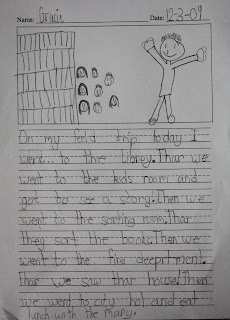 Name: Gracie Date: 12-3-09
On my feld trip today I
went... to the librey. Thar we
went to the kids room and
got to see a story. Then we
went to the sorting room. Thar
they sort the books. Then we
went to the fire deeprtment.
Thar we saw thar house. Then
we went to city hol and eat
lunch with the many.